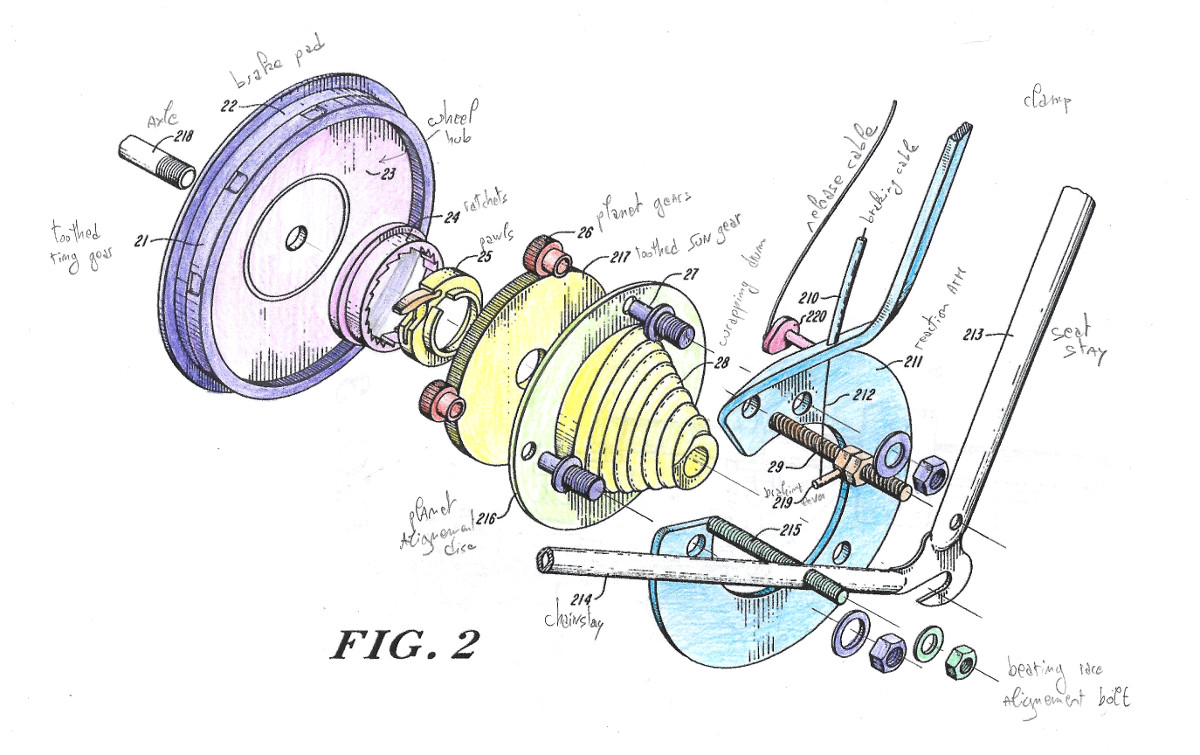 brake pad
22
Axle
218
wheel
hub
23
toothed
ring gear
21
24
ratchets
pawls
25
26
planet gears
217
toothed sun gear
27
wrapping drum
28
release cable
breking cable
clamp
210
220
reaction ARM
211
213
seat
STAY
212
29
219
216
planet
Alignement
disc
215
214
chainstay
FIG. 2
bearing race
Alignement bolt